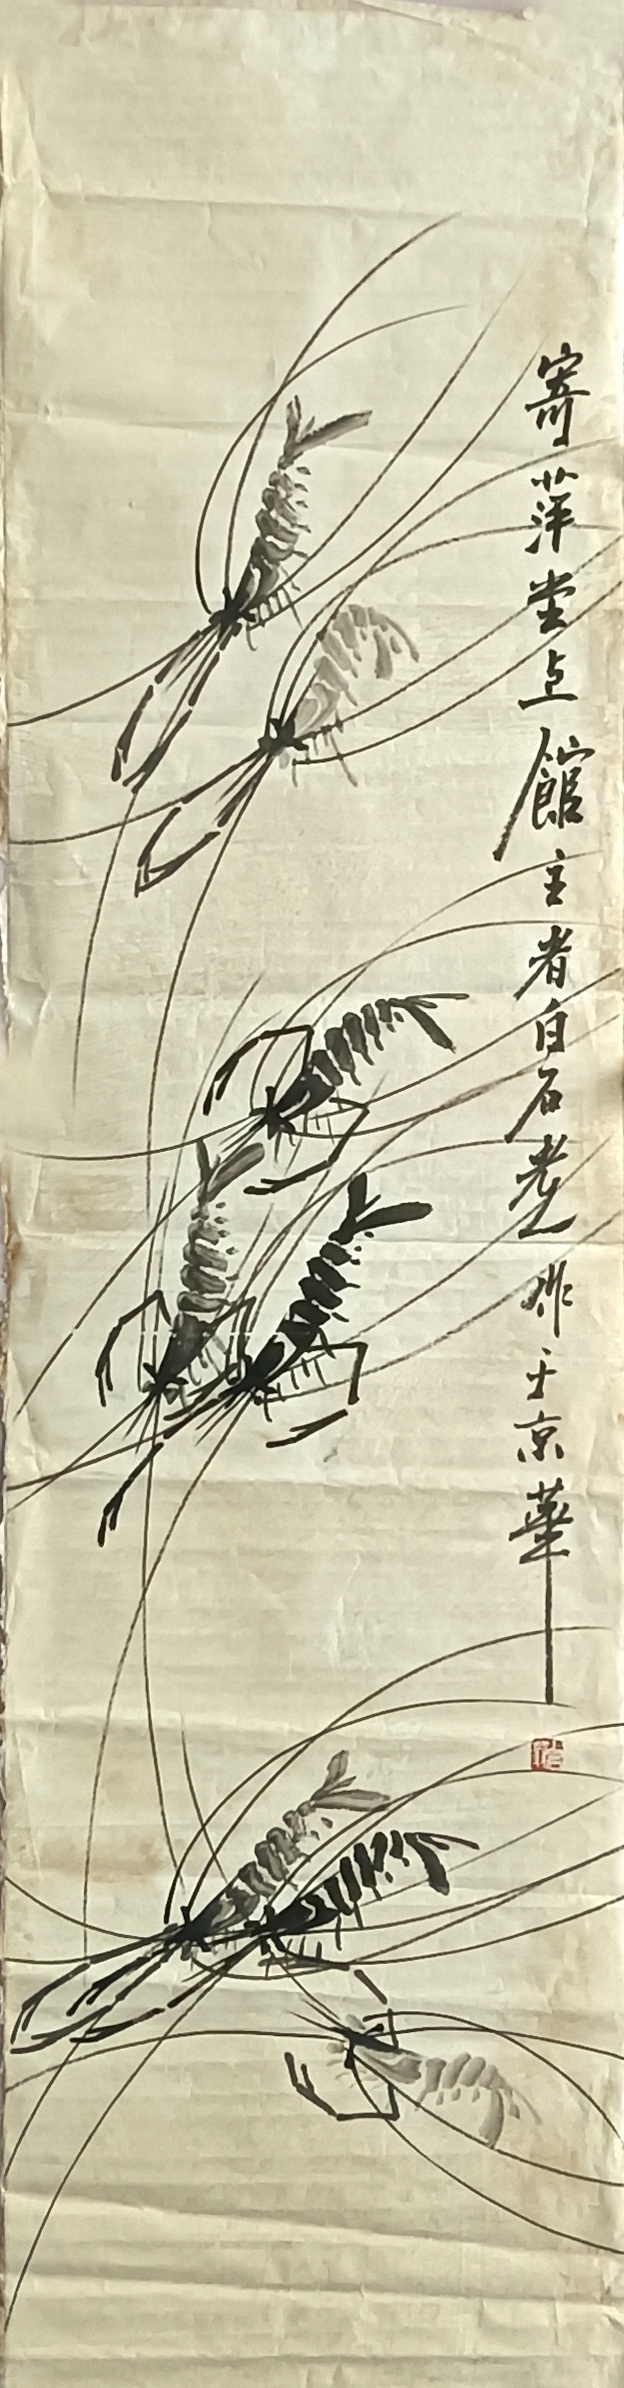 寄萍堂上館主者白石老人作于京華